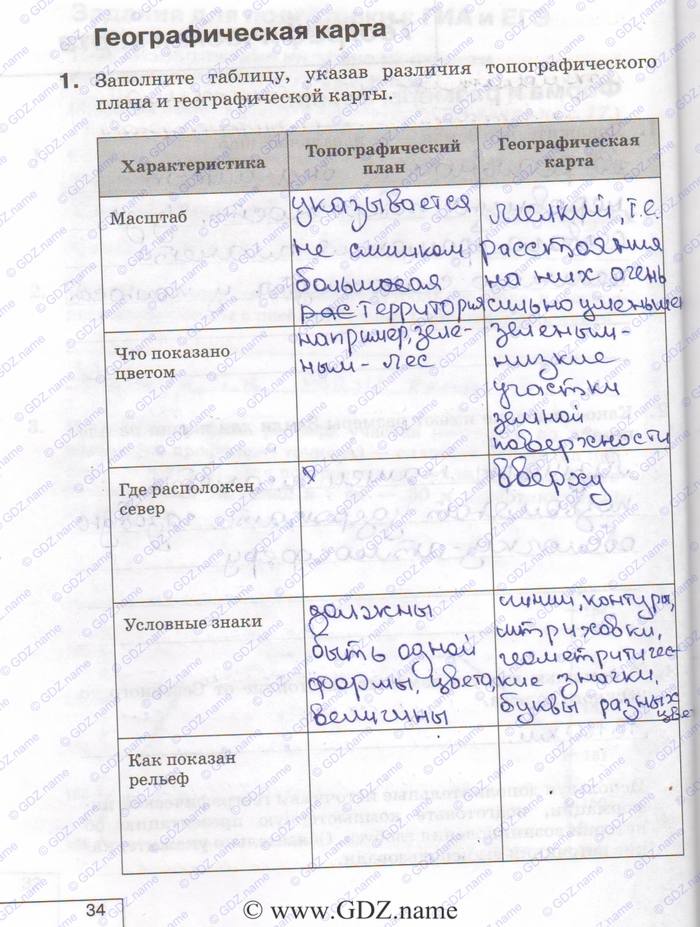 Географическая карта
1. Заполните таблицу, указав различия топографического
плана и географической карты.
Характеристика
Топографический
план
Географическая
карта
Масштаб
указывается
не слишком
большовая
рас территория
Мелкий, т.е.
расстояния
на них очень
сильно уменьше
Что показано
цветом
например, зеле-
ным - лес
зеленым-
низкие
участки
земной
поверхности
Где расположен
север
вверху
Условные знаки
должны
быть одной
формы, цвета,
величины
линии, контуры,
штриховки,
геометритичес-
кие значки,
буквы разных
цве
Как показан
рельеф
34
© www.GDZ.name